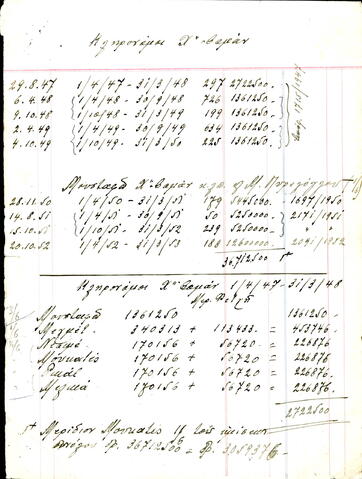 Κληρονόμοι Χ" Οσμάν
24.8.47 1/4/47 - 31/3/48 297 2722500.-
6.4.48 1/4/48 - 30/9/48 726 1361250.-
9.10.48 1/10/48 - 31/3/49 199 1361250.-
2.4.49 1/4/49 - 30/9/49 634 1361250.-
4.10.49 1/10/49 - 31/3/50 225 1361250.-
Μουσταφᾶ Χ" Οσμάν κλπ
28.11.50 1/4/50 - 31/3/51 179 5445000.- 1697/1950
14.8.51 1/4/51 - 30/9/51 50 5250000.- 2171/1951
15.10.51 1/10/51 - 31/3/52 239 5250000.- " "
20.10.52 1/4/52 - 31/3/53 188 12600000.- 2091/1952
36712500
Κληρονόμοι Χ" Οσμάν 1/4/47 - 31/3/48
Μουσταφᾶ 1361250 1361250.-
Μεχμέτ 340313 + 113433 = 453746.-
170156 + 56720 = 226876
Μουκατές 170156 + 56720 = 226876.
170156 + 56720 = 226876.
Μελικά 170156 + 56720 = 226876.
2722500
Μερίδιον Μουκατες
36712500 = 3059376